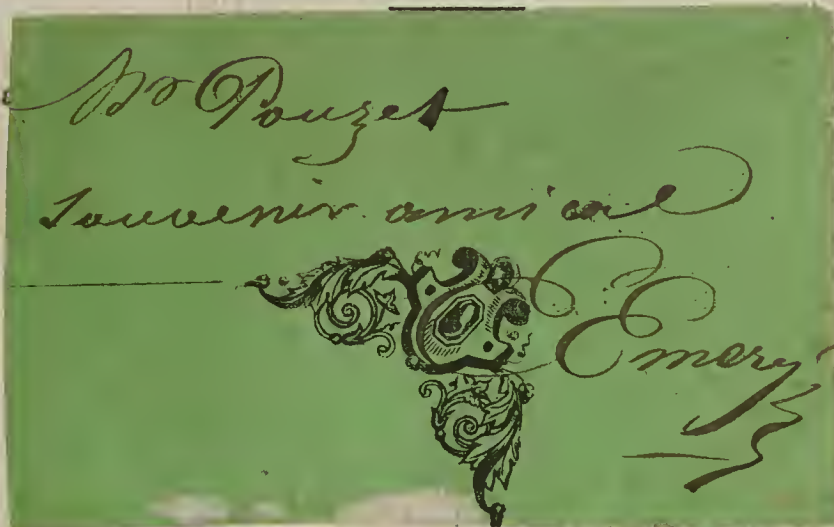 Mr Pouzet
Souvenir amical
Emery